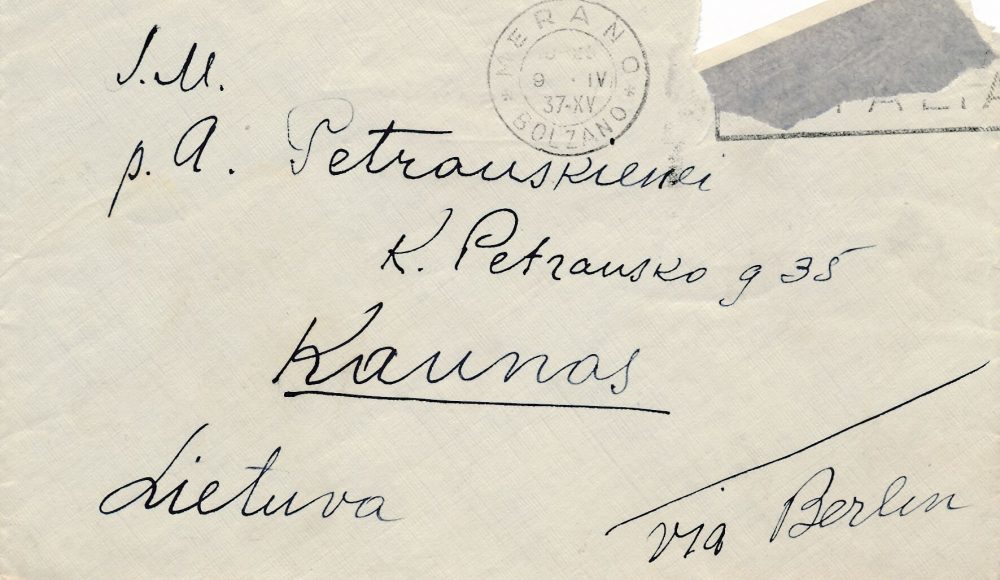 MERANO
9 · IV
37-XV
* BOLZANO *
J. M.
p. A. Petrauskienei
K. Petrausko g 35
Kaunas
Lietuva
via Berlen